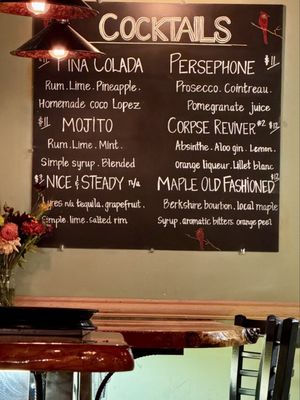 COCKTAILS
PINA COLADA
Rum. Lime. Pineapple.
Homemade coco Lopez
$11 MOJITO
Rum. Lime. Mint.
Simple syrup. Blended
NICE & STEADY n/a
n/a tequila. grapefruit.
Simple. lime. salted rim
PERSEPHONE $11
Prosecco. Cointreau.
Pomegranate juice
CORPSE REVIVER #2
Absinthe. Aloo gin. Lemon.
orange liqueur. Lillet blanc
MAPLE OLD FASHIONED $12
Berkshire bourbon. local maple
Syrup. aromatic bitters. orange peel